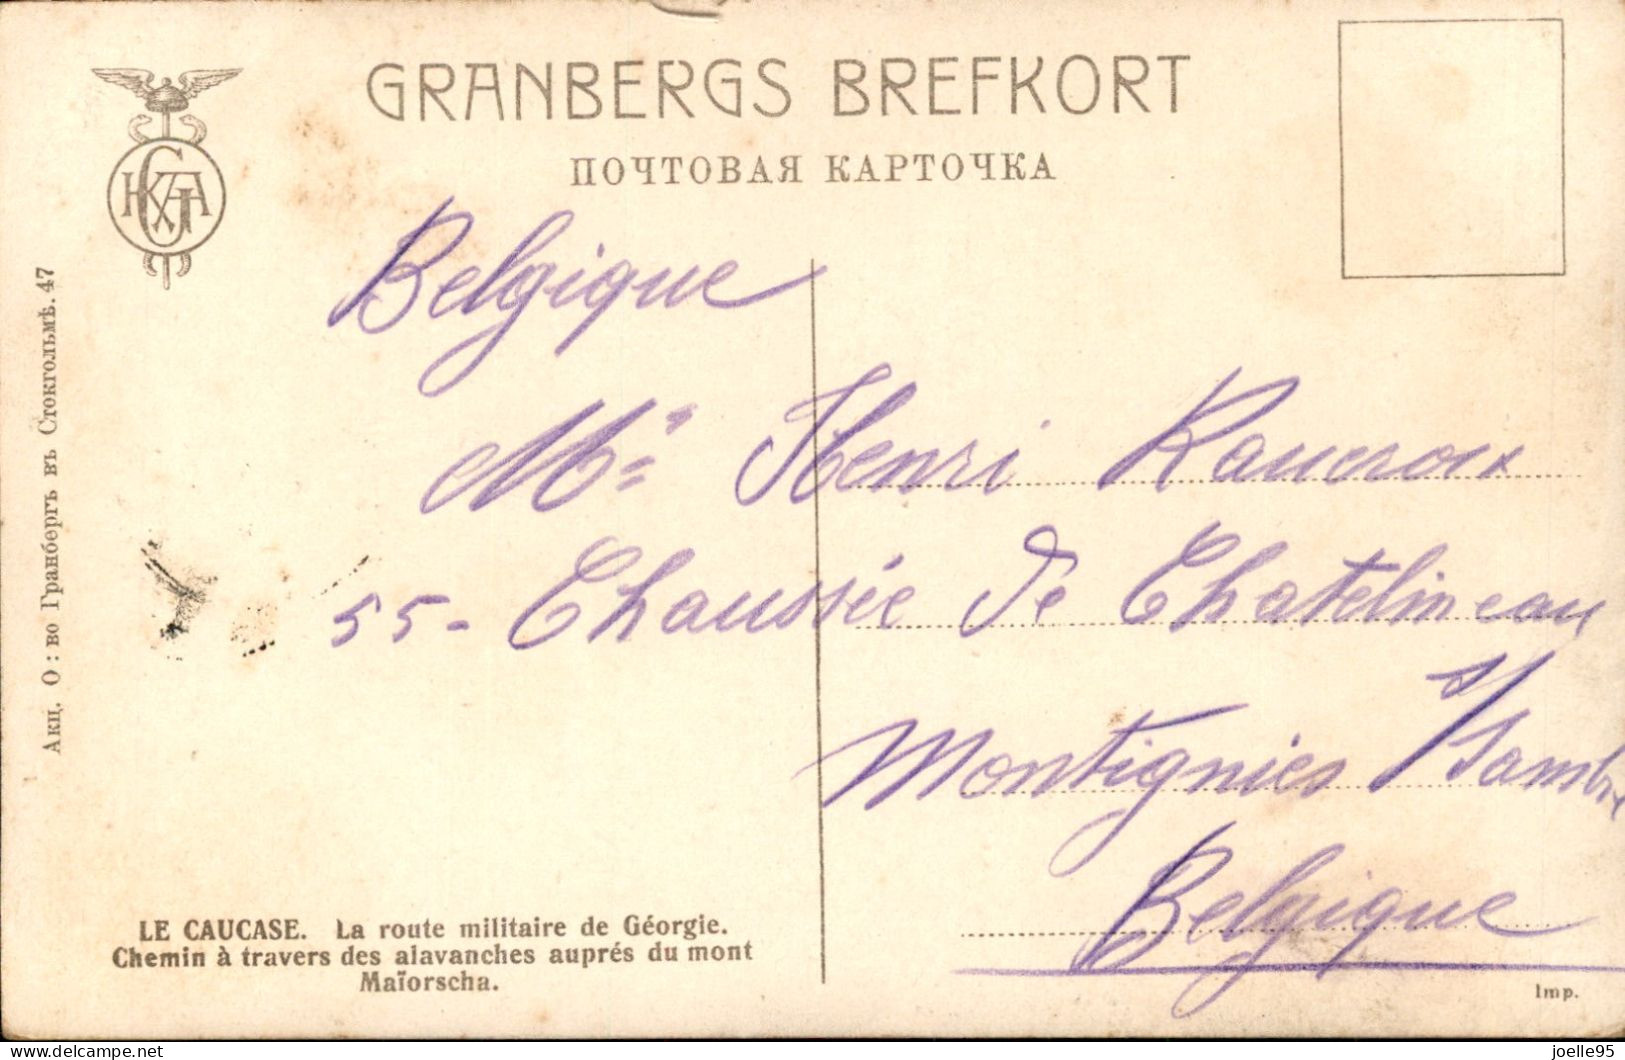 GRANBERGS BREFKORT
ПОЧТОВАЯ КАРТОЧКА
Belgique
Mr Henri Raucroix
55 - Chaussée de Chatelineau
Montignies s/Sambre
Belgique
LE CAUCASE. La route militaire de Géorgie.
Chemin à travers des alavanches auprés du mont
Maïorscha.
Imp.
Акц. О: во Гранбергъ въ Стокгольмѣ. 47
delcampe.net
joelle95